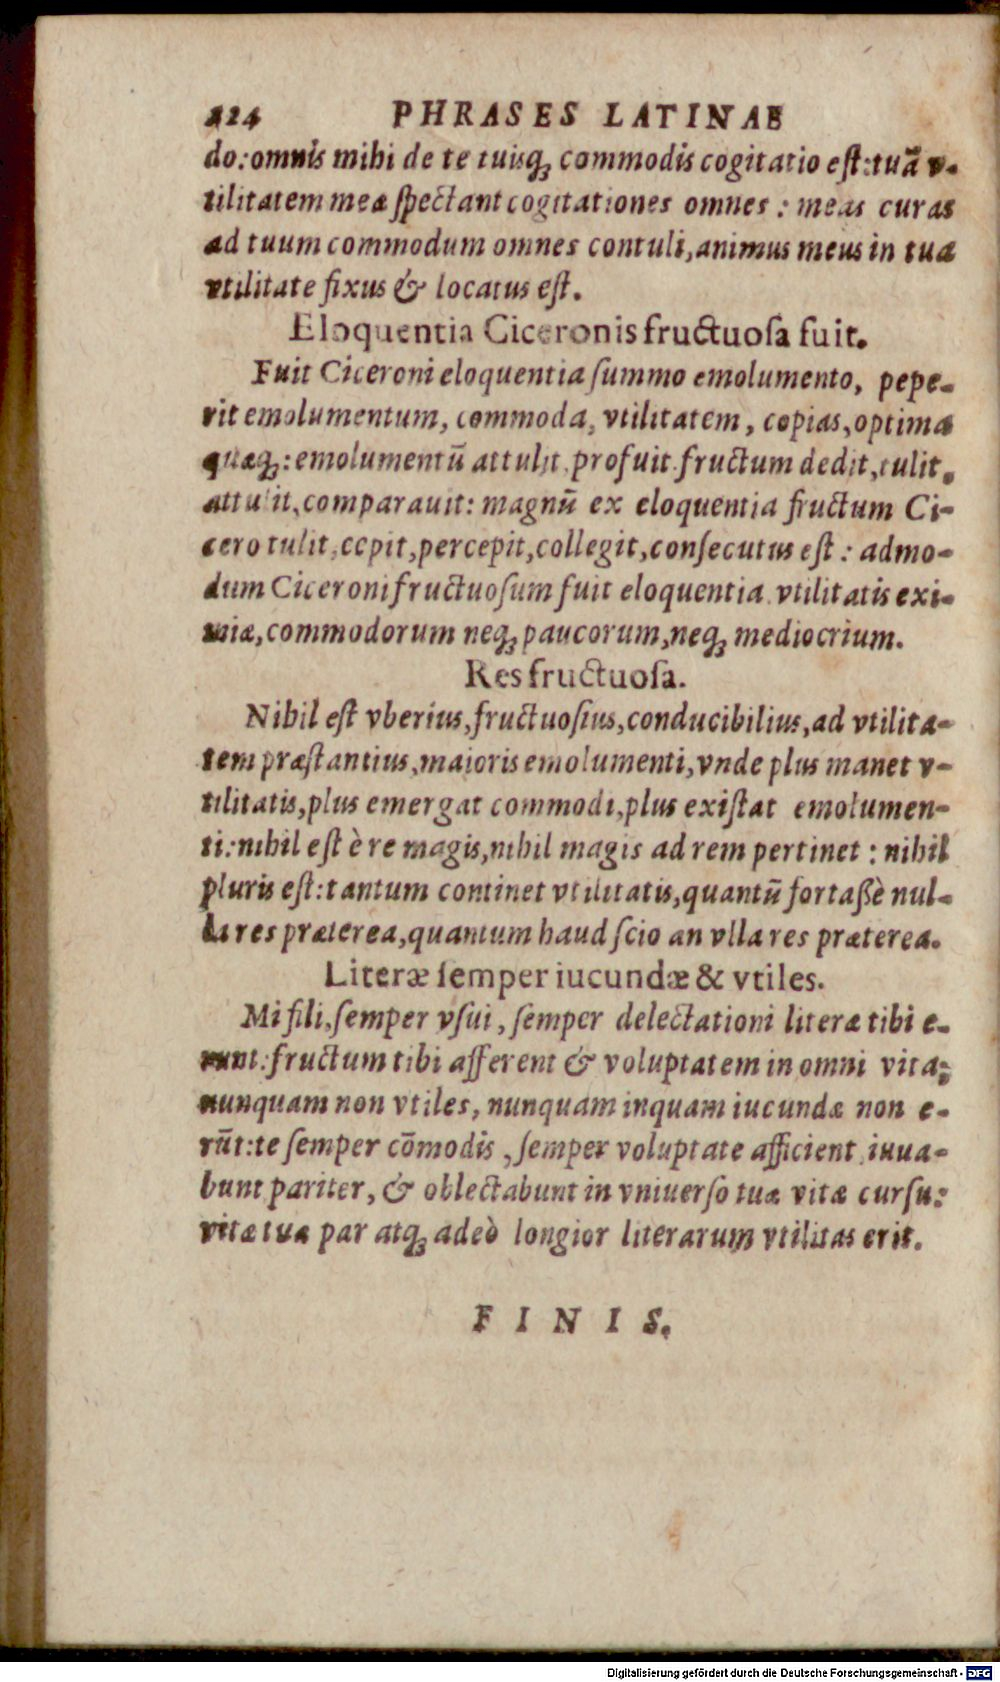 224 PHRASES LATINAE
do: omnis mihi de te tuisq́; commodis cogitatio est: tuā v-
tilitatem meæ spectant cogitationes omnes: meas curas
ad tuum commodum omnes contuli, animus meus in tua
vtilitate fixus & locatus est.
Eloquentia Ciceronis fructuosa fuit.
Fuit Ciceroni eloquentia summo emolumento, pepe-
rit emolumentum, commoda, vtilitatem, copias, optima
quæq́;: emolumentū attulit, profuit, fructum dedit, tulit,
attulit, comparauit: magnū ex eloquentia fructum Ci-
cero tulit, cepit, percepit, collegit, consecutus est: admo-
dum Ciceroni fructuosum fuit eloquentia, vtilitatis exi-
miæ, commodorum neq́; paucorum, neq́; mediocrium.
Res fructuosa.
Nihil est vberius, fructuosius, conducibilius, ad vtilita-
tem præstantius, maioris emolumenti, vnde plus manet v-
tilitatis, plus emergat commodi, plus existat emolumen-
ti: nihil est è re magis, nihil magis ad rem pertinet: nihil
pluris est: tantum continet vtilitatis, quantū fortaßè nul-
la res præterea, quantum haud scio an vlla res præterea.
Literæ semper iucundæ & vtiles.
Mi fili, semper vsui, semper delectationi literæ tibi e-
runt: fructum tibi afferent & voluptatem in omni vita;
nunquam non vtiles, nunquam inquam iucundæ non e-
rūt: te semper cōmodis, semper voluptate afficient, iuua-
bunt pariter, & oblectabunt in vniuerso tuæ vitæ cursu:
vitæ tuæ par atq́; adeò longior literarum vtilitas erit.
FINIS.
Digitalisierung gefördert durch die Deutsche Forschungsgemeinschaft - DFG